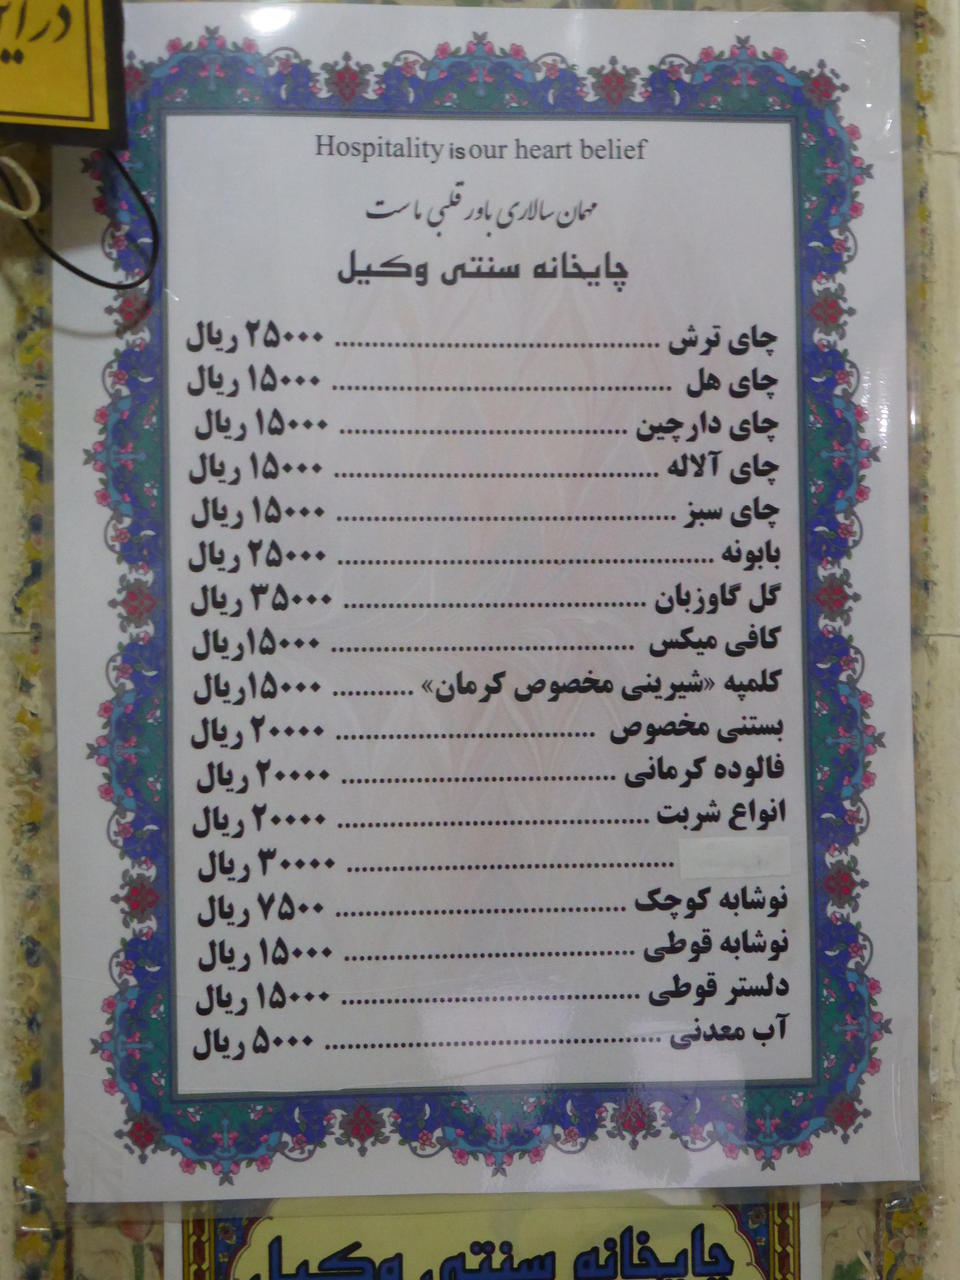 Hospitality is our heart belief
مهمان سالاری باور قلبی ماست
چایخانه سنتی وکیل
چای ترش ........................................ ۲۵۰۰۰ ریال
چای هل ........................................ ۱۵۰۰۰ ریال
چای دارچین ................................... ۱۵۰۰۰ ریال
چای آلاله ........................................ ۱۵۰۰۰ ریال
چای سبز ........................................ ۱۵۰۰۰ ریال
بابونه ............................................. ۲۵۰۰۰ ریال
گل گاوزبان .................................... ۳۵۰۰۰ ریال
کافی میکس .................................... ۱۵۰۰۰ریال
کلمپه «شیرینی مخصوص کرمان» .......... ۱۵۰۰۰ریال
بستنی مخصوص ............................... ۲۰۰۰۰ ریال
فالوده کرمانی ................................. ۲۰۰۰۰ ریال
انواع شربت ..................................... ۲۰۰۰۰ ریال
........................................ ۳۰۰۰۰ ریال
نوشابه کوچک ................................... ۷۵۰۰ ریال
نوشابه قوطی ................................... ۱۵۰۰۰ ریال
دلستر قوطی .................................... ۱۵۰۰۰ ریال
آب معدنی ........................................ ۵۰۰۰ ریال
چایخانه سنتی وکیل